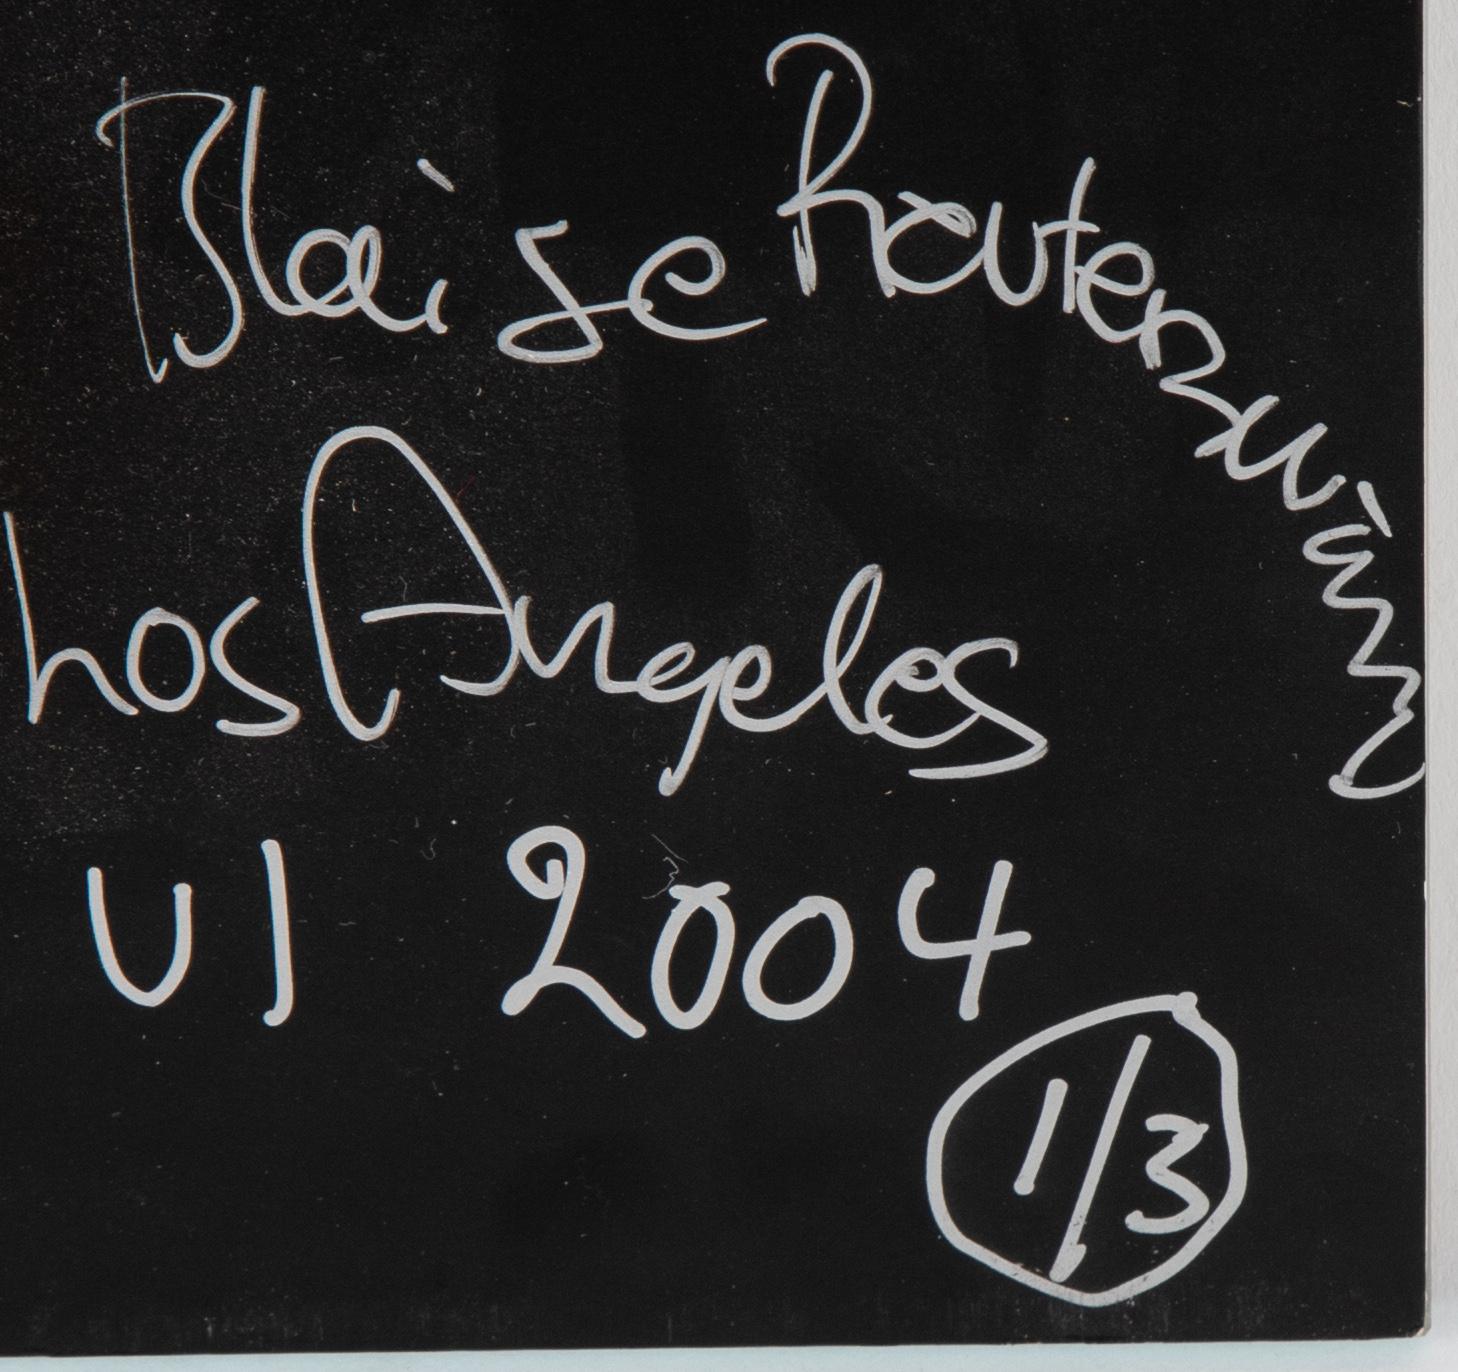 Blaise Reuterswärd
Los Angeles
VI 2004
1/3